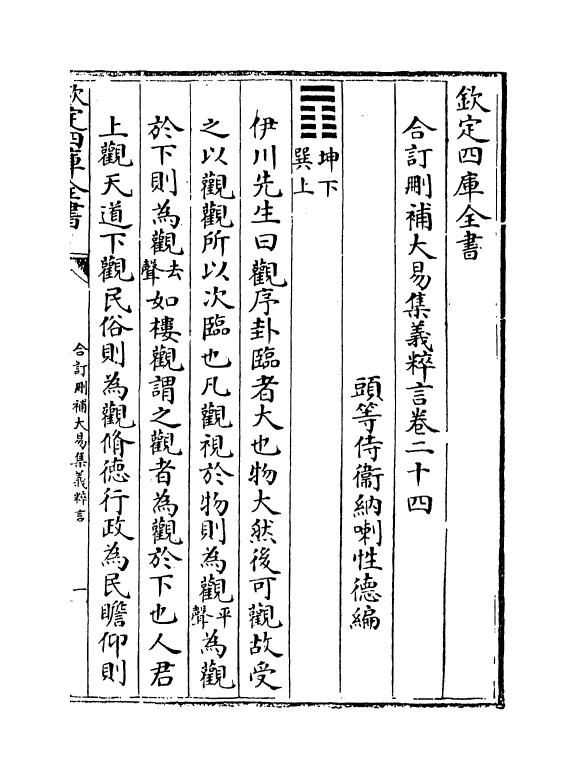 欽定四庫全書
合訂刪補大易集義粹言卷二十四
頭等侍衞納喇性德編
坤下
巽上
伊川先生曰觀序卦臨者大也物大然後可觀故受
之以觀觀所以次臨也凡觀視於物則為觀平聲為觀
於下則為觀去聲如樓觀謂之觀者為觀於下也人君
上觀天道下觀民俗則為觀脩徳行政為民瞻仰則
欽定四庫全書
合訂刪補大易集義粹言
一